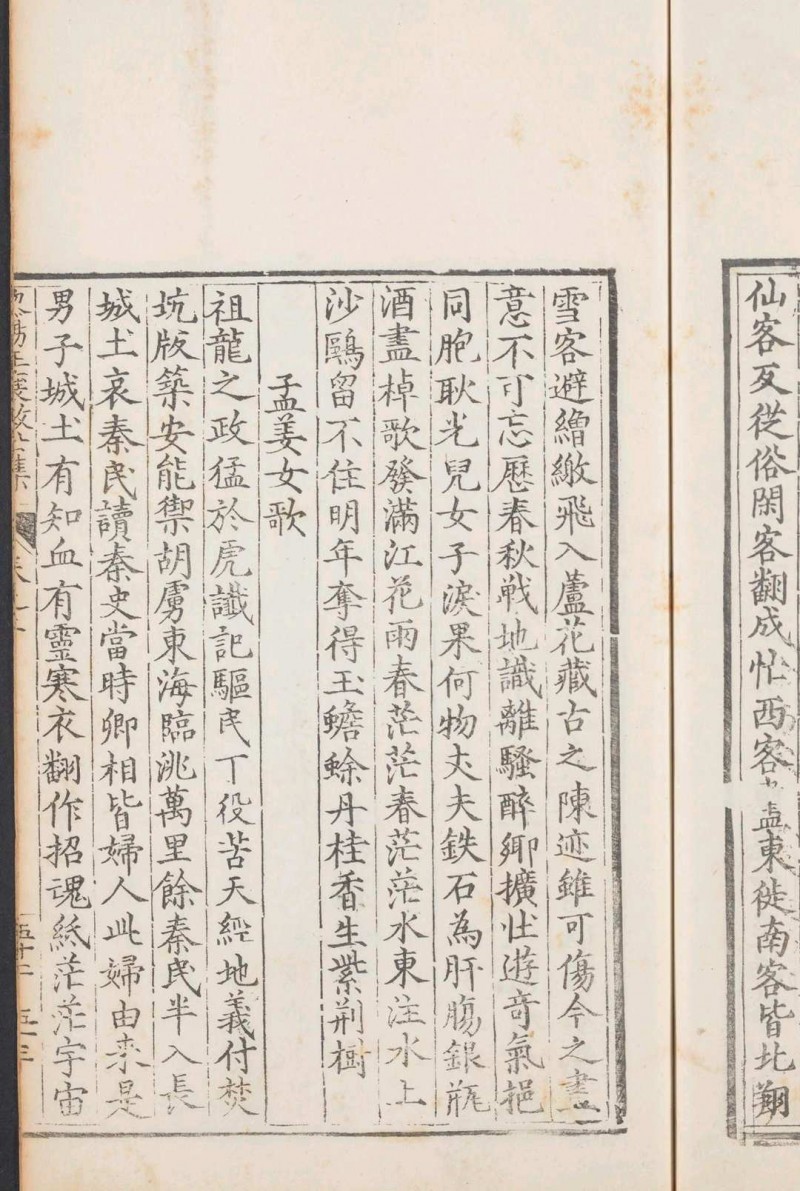 仙客夃從俗閑客翻成怗西客盍東徙南客皆北翔
雪客避繒繳飛入蘆花藏古之陳迹雖可傷今之畫
意不可忘歷春秋戦地識離騷醉鄉擴壮遊奇氣挹
同胞耿光兒女子淚果何物丈夫鉄石為肝膓銀瓶
酒盡棹歌發滿江花雨春茫茫春茫茫水東注水上
沙鷗留不住明年奪得玉蟾蜍丹桂香生紫荆樹
孟姜女歌
祖龍之政猛於虎讖記驅民丁役苦天經地義付焚
坑版築安能禦胡虜東海臨洮萬里餘秦民半入長
城土哀秦民讀秦史當時卿相皆婦人此婦由来是
男子城土有知血有靈寒衣翻作招魂紙茫茫宇宙